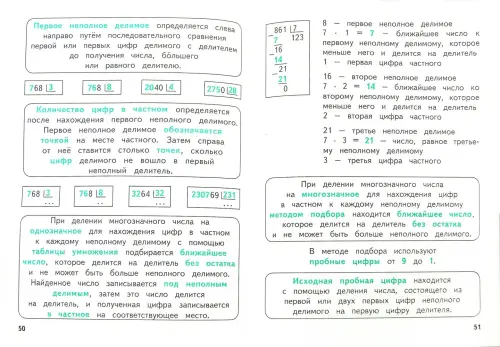 Первое неполное делимое определяется слева
направо путём последовательного сравнения
первой или первых цифр делимого с делителем
до получения числа, бóльшего
или равного делителю.
768 3
768 8
2040 4
2750 28
Количество цифр в частном определяется
после нахождения первого неполного делимого.
Первое неполное делимое обозначается
точкой на месте частного. Затем справа
от неё ставится столько точек, сколько
цифр делимого не вошло в первый
неполный делитель.
768 3
...
768 8
..
3264 32
...
230769 231
...
При делении многозначного числа на
однозначное для нахождения цифр в частном
к каждому неполному делимому с помощью
таблицы умножения подбирается ближайшее
число, которое делится на делитель без остатка
и не может быть больше неполного делимого.
Найденное число записывается под неполным
делимым, затем это число делится
на делитель, и полученная цифра записывается
в частное на соответствующее место.
50
861 7
7 123
-16
14
-21
21
0
8 — первое неполное делимое
7 · 1 = 7 — ближайшее число к
первому неполному делимому, которое
меньше него и делится на делитель
1 — первая цифра частного
16 — второе неполное делимое
7 · 2 = 14 — ближайшее число ко
второму неполному делимому, которое
меньше него и делится на делитель
2 — вторая цифра частного
21 — третье неполное делимое
7 · 3 = 21 — число, равное третье-
му неполному делимому
3 — третья цифра частного
При делении многозначного числа
на многозначное для нахождения цифр
в частном к каждому неполному делимому
методом подбора находится ближайшее число,
которое делится на делитель без остатка
и не может быть больше неполного делимого.
В методе подбора используют
пробные цифры от 9 до 1.
Исходная пробная цифра находится
с помощью деления числа, состоящего из
первой или двух первых цифр неполного
делимого на первую цифру делителя.
51